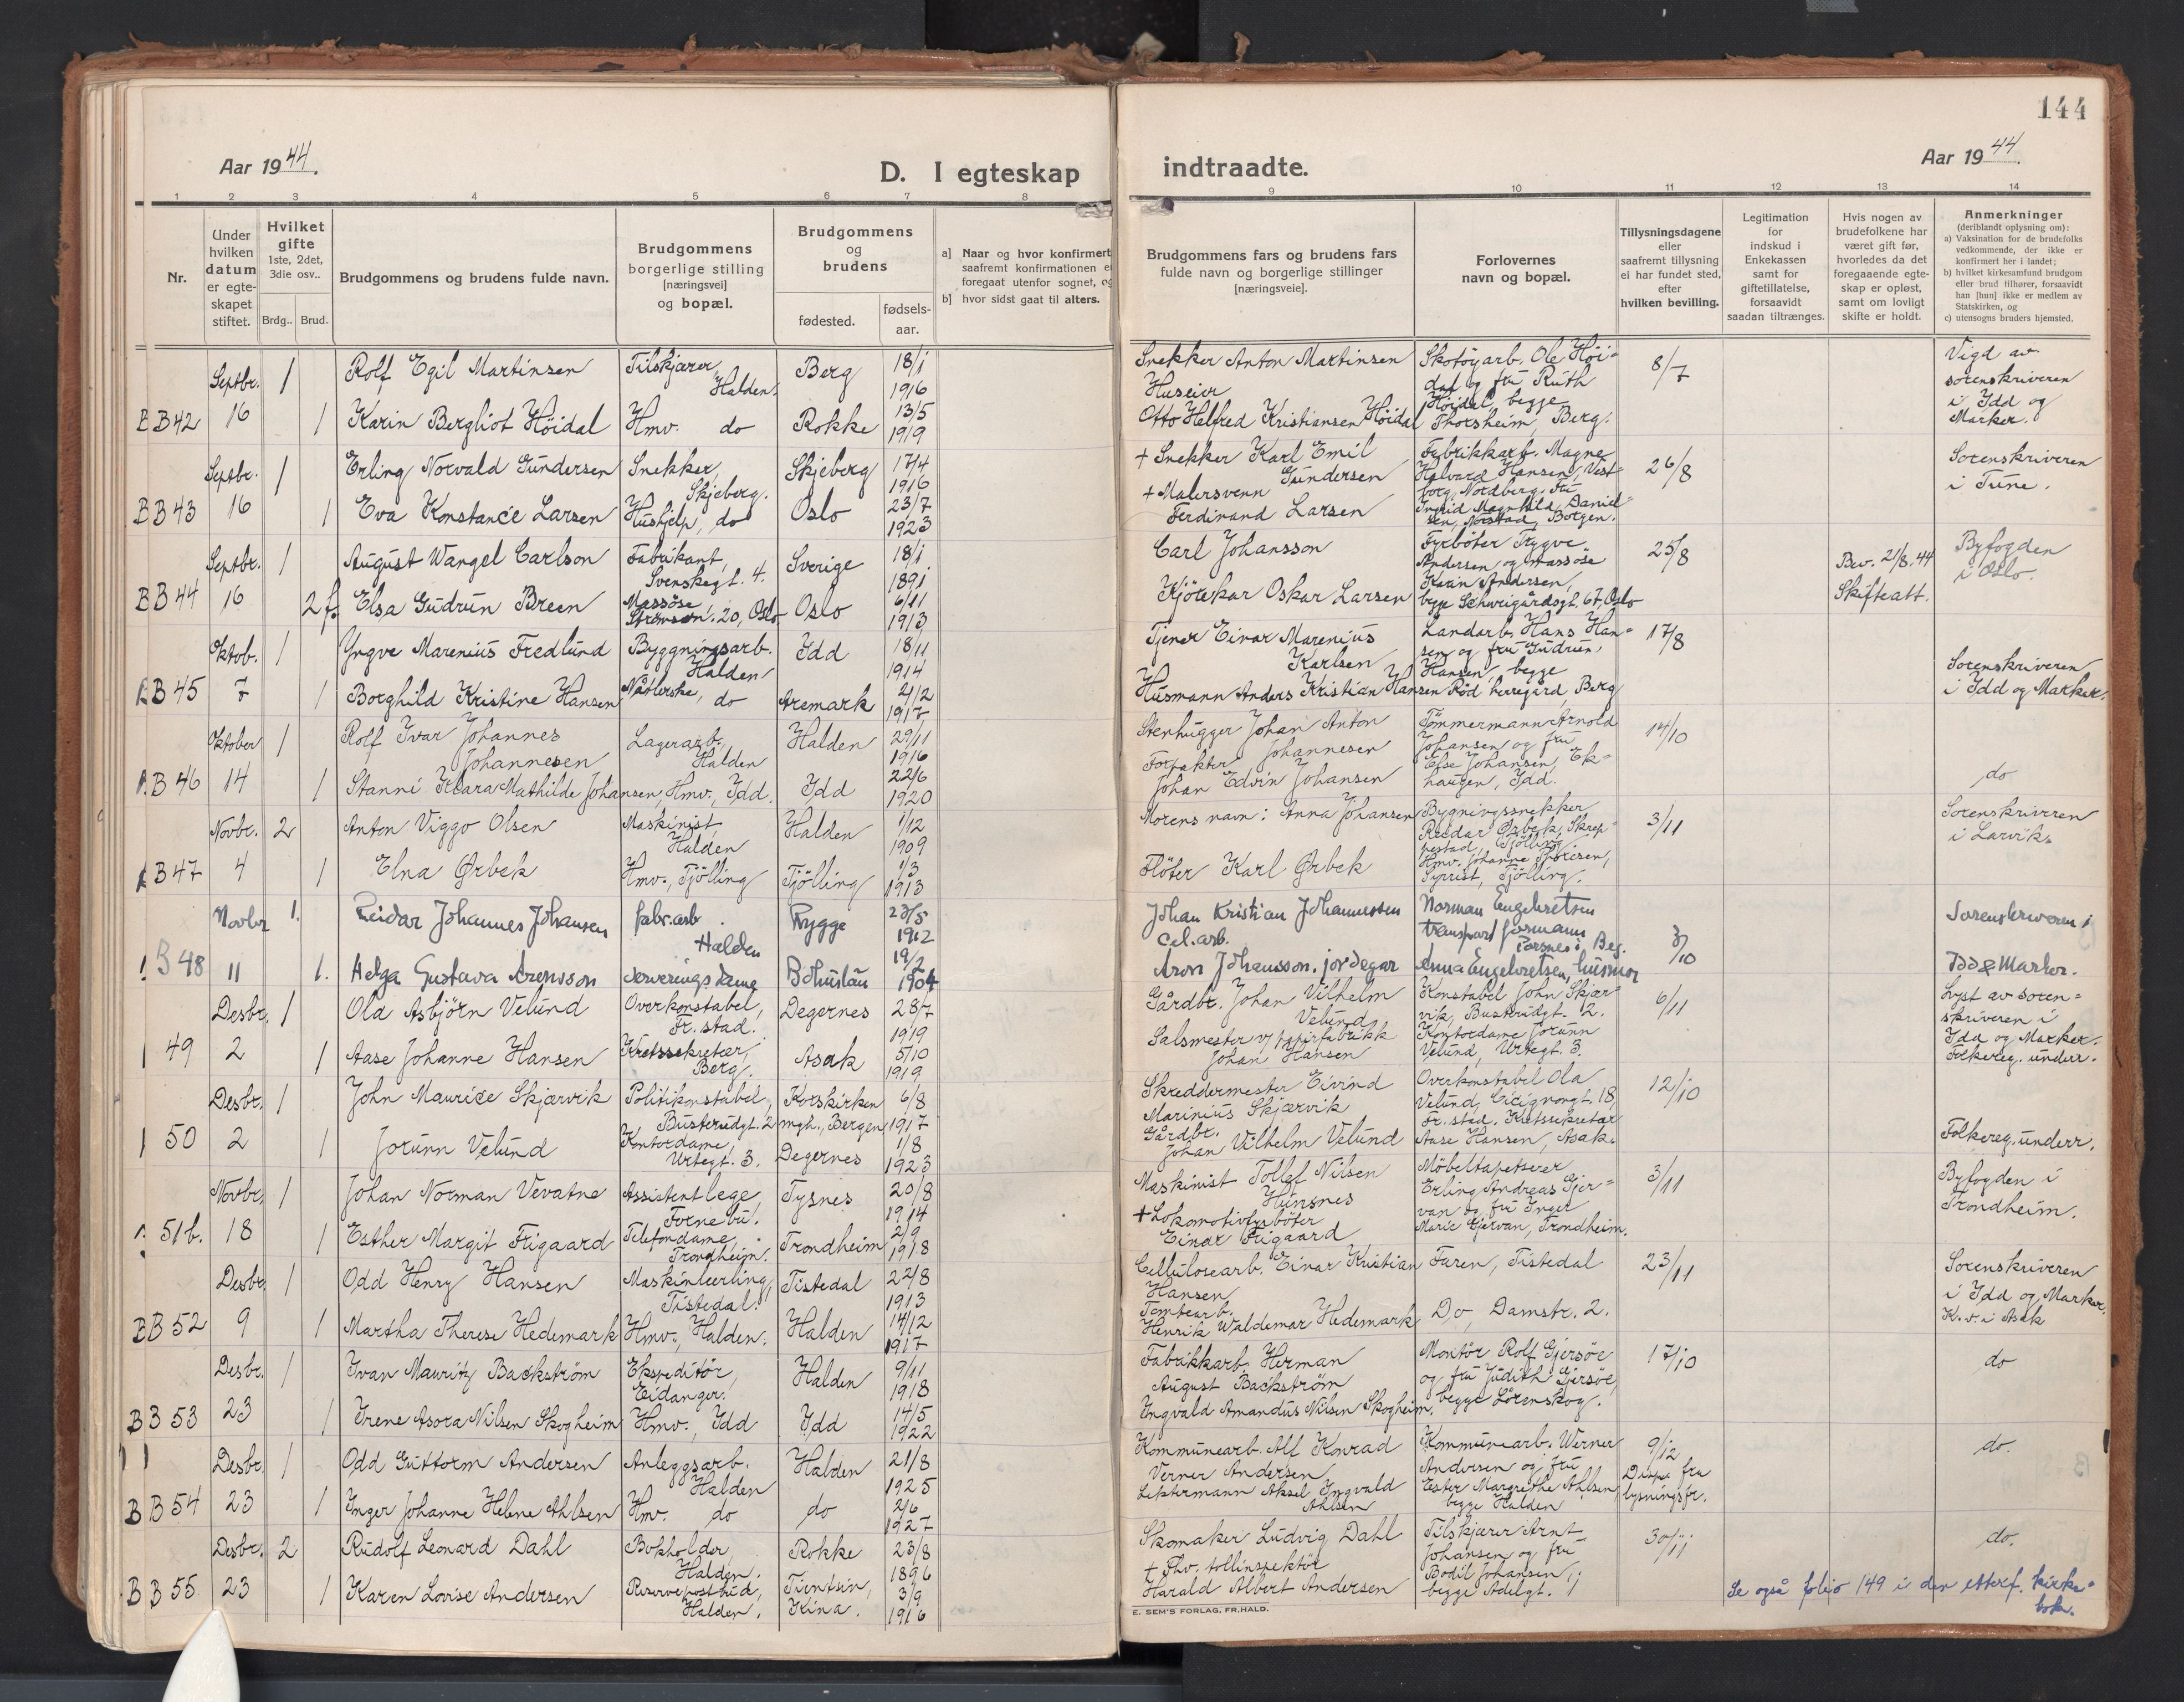 144
Aar 1944.
D. I egteskap
indtraadte.
Aar 1944.
1 2 3 4 5 6 7 8 9 10 11 12 13 14
Nr.
Under hvilken datum er egteskapet stiftet.
Hvilket gifte 1ste, 2det, 3die osv..
Brdg.. Brud.
Brudgommens og brudens fulde navn.
Brudgommens borgerlige stilling [næringsvei] og bopæl.
Brudgommens og brudens
fødested.
fødsels-aar.
a] Naar og hvor konfirmert
saafremt konfirmationen e
foregaat utenfor sognet, og
b] hvor sidst gaat til alters.
Brudgommens fars og brudens fars fulde navn og borgerlige stillinger [næringsveie].
Forlovernes navn og bopæl.
Tillysningsdagene eller saafremt tillysning ei har fundet sted, efter hvilken bevilling.
Legitimation for indskud i Enkekassen samt for giftetillatelse, forsaavidt saadan tiltrænges.
Hvis nogen av brudefolkene har været gift før, hvorledes da det foregaaende egteskap er opløst, samt om lovligt skifte er holdt.
Anmerkninger (deriblandt oplysning om):
a) Vaksination for de brudefolks vedkommende, der ikke er konfirmert her i landet;
b) hvilket kirkesamfund brudgom eller brud tilhører, forsaavidt han [hun] ikke er medlem av Statskirken, og
c) utensogns bruders hjemsted.
Septbr. 1 Rolf Egil Martinsen Tilskjærer, Halden. Berg 18/1 1916 Snekker Anton Martinsen Skotøyarb. Ole Höidal og fru Ruth Höidal, begge Thorsheim, Berg. 8/7 Vigd av sorenskriveren i Idd og Marker.
B B 42 16 1 Karin Bergliot Höidal Hmv. do Rokke 13/5 1919 Huseier Otto Helfred Kristiansen Höidal
Septbr. 1 Erling Norvald Gundersen Snekker, Skjeberg. Skjeberg 17/4 1916 + Snekker Karl Emil Gundersen Fabrikkarb. Magner Halvard Hansen, Vestborg, Nordberg. Fru Ingrid Magnhild Danielsen, Norstad, Borgen. 26/8 Sorenskriveren i Tune.
B B 43 16 1 Eva Konstance Larsen Hushjelp, do Oslo 23/7 1923 + Malersvenn Ferdinand Larsen
Septbr. 1 August Wangel Carlson Fabrikant, Svenskegt. 4. Sverige 18/1 1891 Carl Johansson Fyrböter Trygve Andersen og massöse Karin Andersen, begge Schweigårdsgt. 67, Oslo 25/8 Bev. 21/8. 44 Skifteatt. Byfogden i Oslo.
B B 44 16 2 f. Elsa Gudrun Breen Massöse 20, Oslo Oslo 6/11 1913 Kjörekar Oskar Larsen
Oktob. 1 Yngve Marenius Fredlund Byggningsarb. Halden Idd 18/11 1914 Tjener Einar Marenius Karlsen Landarb. Hans Hansen og fru Gudrun Hansen, begge Röd herregård, Berg 17/8 Sorenskriveren i Idd og Marker.
B 45 7 1 Borghild Kristine Hansen Nåtlerske, do Aremark 2/12 1917 Husmann Anders Kristian Hansen
Oktober 1 Rolf Ivar Johannes Johannesen Lagerarb., Halden Halden 29/11 1916 Stenhugger Johan Anton Johannesen Tömmermann Arnold Johansen og fru Else Johansen, Ekhaugen, Idd. 14/10 do
B 46 14 1 Stanni Klara Mathilde Johansen, Hmv., Idd. Idd 22/6 1920 Forpakter Johan Edvin Johansen
Novbr. 2 Anton Viggo Olsen Maskinist, Halden Halden 1/12 1909 Morens navn: Anna Johansen Bygningssnekker Reidar Ørbek, Skreppestad, Tjölling Hmv. Johanne Thoresen, Syrist, Tjölling. 3/11 Sorenskriveren i Larvik.
B 47 4 1 Elna Ørbek Hmv., Tjölling Tjölling 1/3 1913 Flöter Karl Ørbek
Novbr 1. Reidar Johannes Johansen fabr.arb. Halden Rygge 23/5 1912 Johan Kristian Johannessen cel.arb. Norman Engebretsen transportformann Porsnes i Beg. 3/10 Sorenskriveren i Idd & Marker.
B 48 11 1. Helga Gustava Aronsson Serveringsdame Bohuslän 19/2 1904 Aron Johansson. jordegar Anna Engebretsen, husmor
Desbr. 1 Ola Asbjörn Velund Overkonstabel, Fr. stad. Degernes 28/7 1919 Gårdbr. Johan Vilhelm Velund Konstabel John Skjærvik, Buskrudgt. 2. Kontordame Jorunn Velund, Urtegt. 3. 6/11 Lyst av sorenskriveren i Idd og Marker. Folkereg. underr.
49 2 1 Aase Johanne Hansen Kretssekretær, Berg. Asak 5/10 1919 Salsmester v/ papirfabrikk Johan Hansen
Desbr. 1 John Maurice Skjærvik Politikonstabel, Busterudgt. 2 Korskirken mgh., Bergen 6/8 1917 Skreddermester Eivind Marinius Skjærvik Overkonstabel Ola Velund, Cicignongt. 18, Fr. stad. Kretssekretær Aase Hansen, Asak. 12/10 Folkereg. underr.
50 2 1 Jorunn Velund Kontordame, Urtegt. 3. Degernes 1/8 1923 Gårdbr. Johan Vilhelm Velund
Novbr. 1 Johan Norman Vevatne Assistentlege, Fornebu. Tysnes 20/8 1914 Maskinist Tollef Nilsen Hunsnes Möbeltapetserer Erling Andreas Gjervan og fru Inger Marie Gjervan, Trondheim. 3/11 Byfogden i Trondheim.
51 b. 18 1 Esther Margit Frigaard Telefondame, Trondheim. Trondheim 2/9 1918 + Lokomotivfyrböter Einar Frigaard
Desbr. 1 Odd Henry Hansen Maskinlærling, Tistedal. Tistedal 22/8 1913 Cellulosearb. Einar Kristian Hansen Faren, Tistedal 23/11 Sorenskriveren i Idd og Marker. K. v. i Asak
B B 52 9 1 Martha Therese Hedemark Hmv., Halden. Halden 14/12 1917 Tomtearb. Henrik Waldemar Hedemark Do, Damstr. 2.
Desbr. 1 Ivan Mauritz Backström Ekspeditör, Eidanger. Halden 9/11 1918 Fabrikkarb. Herman August Backström Montör Rolf Gjersöe og fru Judith Gjersöe, begge Lörenskog. 17/10 do
B B 53 23 1 Irene Asora Nilsen Skogheim Hmv., Idd Idd 14/5 1922 Ingvald Amandus Nilsen Skogheim.
Desbr. 1 Odd Guttorm Andersen Anleggsarb. Halden Halden 21/8 1925 Kommunearb. Alf Konrad Verner Andersen Kommunearb. Werner Andersen og fru Ester Margrethe Ahlsen, begge Halden 9/12 Disp. fra lysningsfr. do.
B B 54 23 1 Inger Johanne Helene Ahlsen Hmv. do do 2/6 1927 Lektermann Aksel Ingvald Ahlsen
Desbr. 2 Rudolf Leonard Dahl Bokholder, Halden. Rokke 23/8 1896 Skomaker Ludvig Dahl Tilskjærer Arnt Johansen og fru Bodil Johansen, begge Adelgt. 30/11 do.
B B 55 23 1 Karen Lovise Andersen Reservepostbud, Halden. Tientsin, Kina. 3/9 1916 + Fhv. tollinspektör Harald Albert Andersen
Se også folio 149 i den etterf. kirkebok.
E. SEM'S FORLAG, FR.HALD.